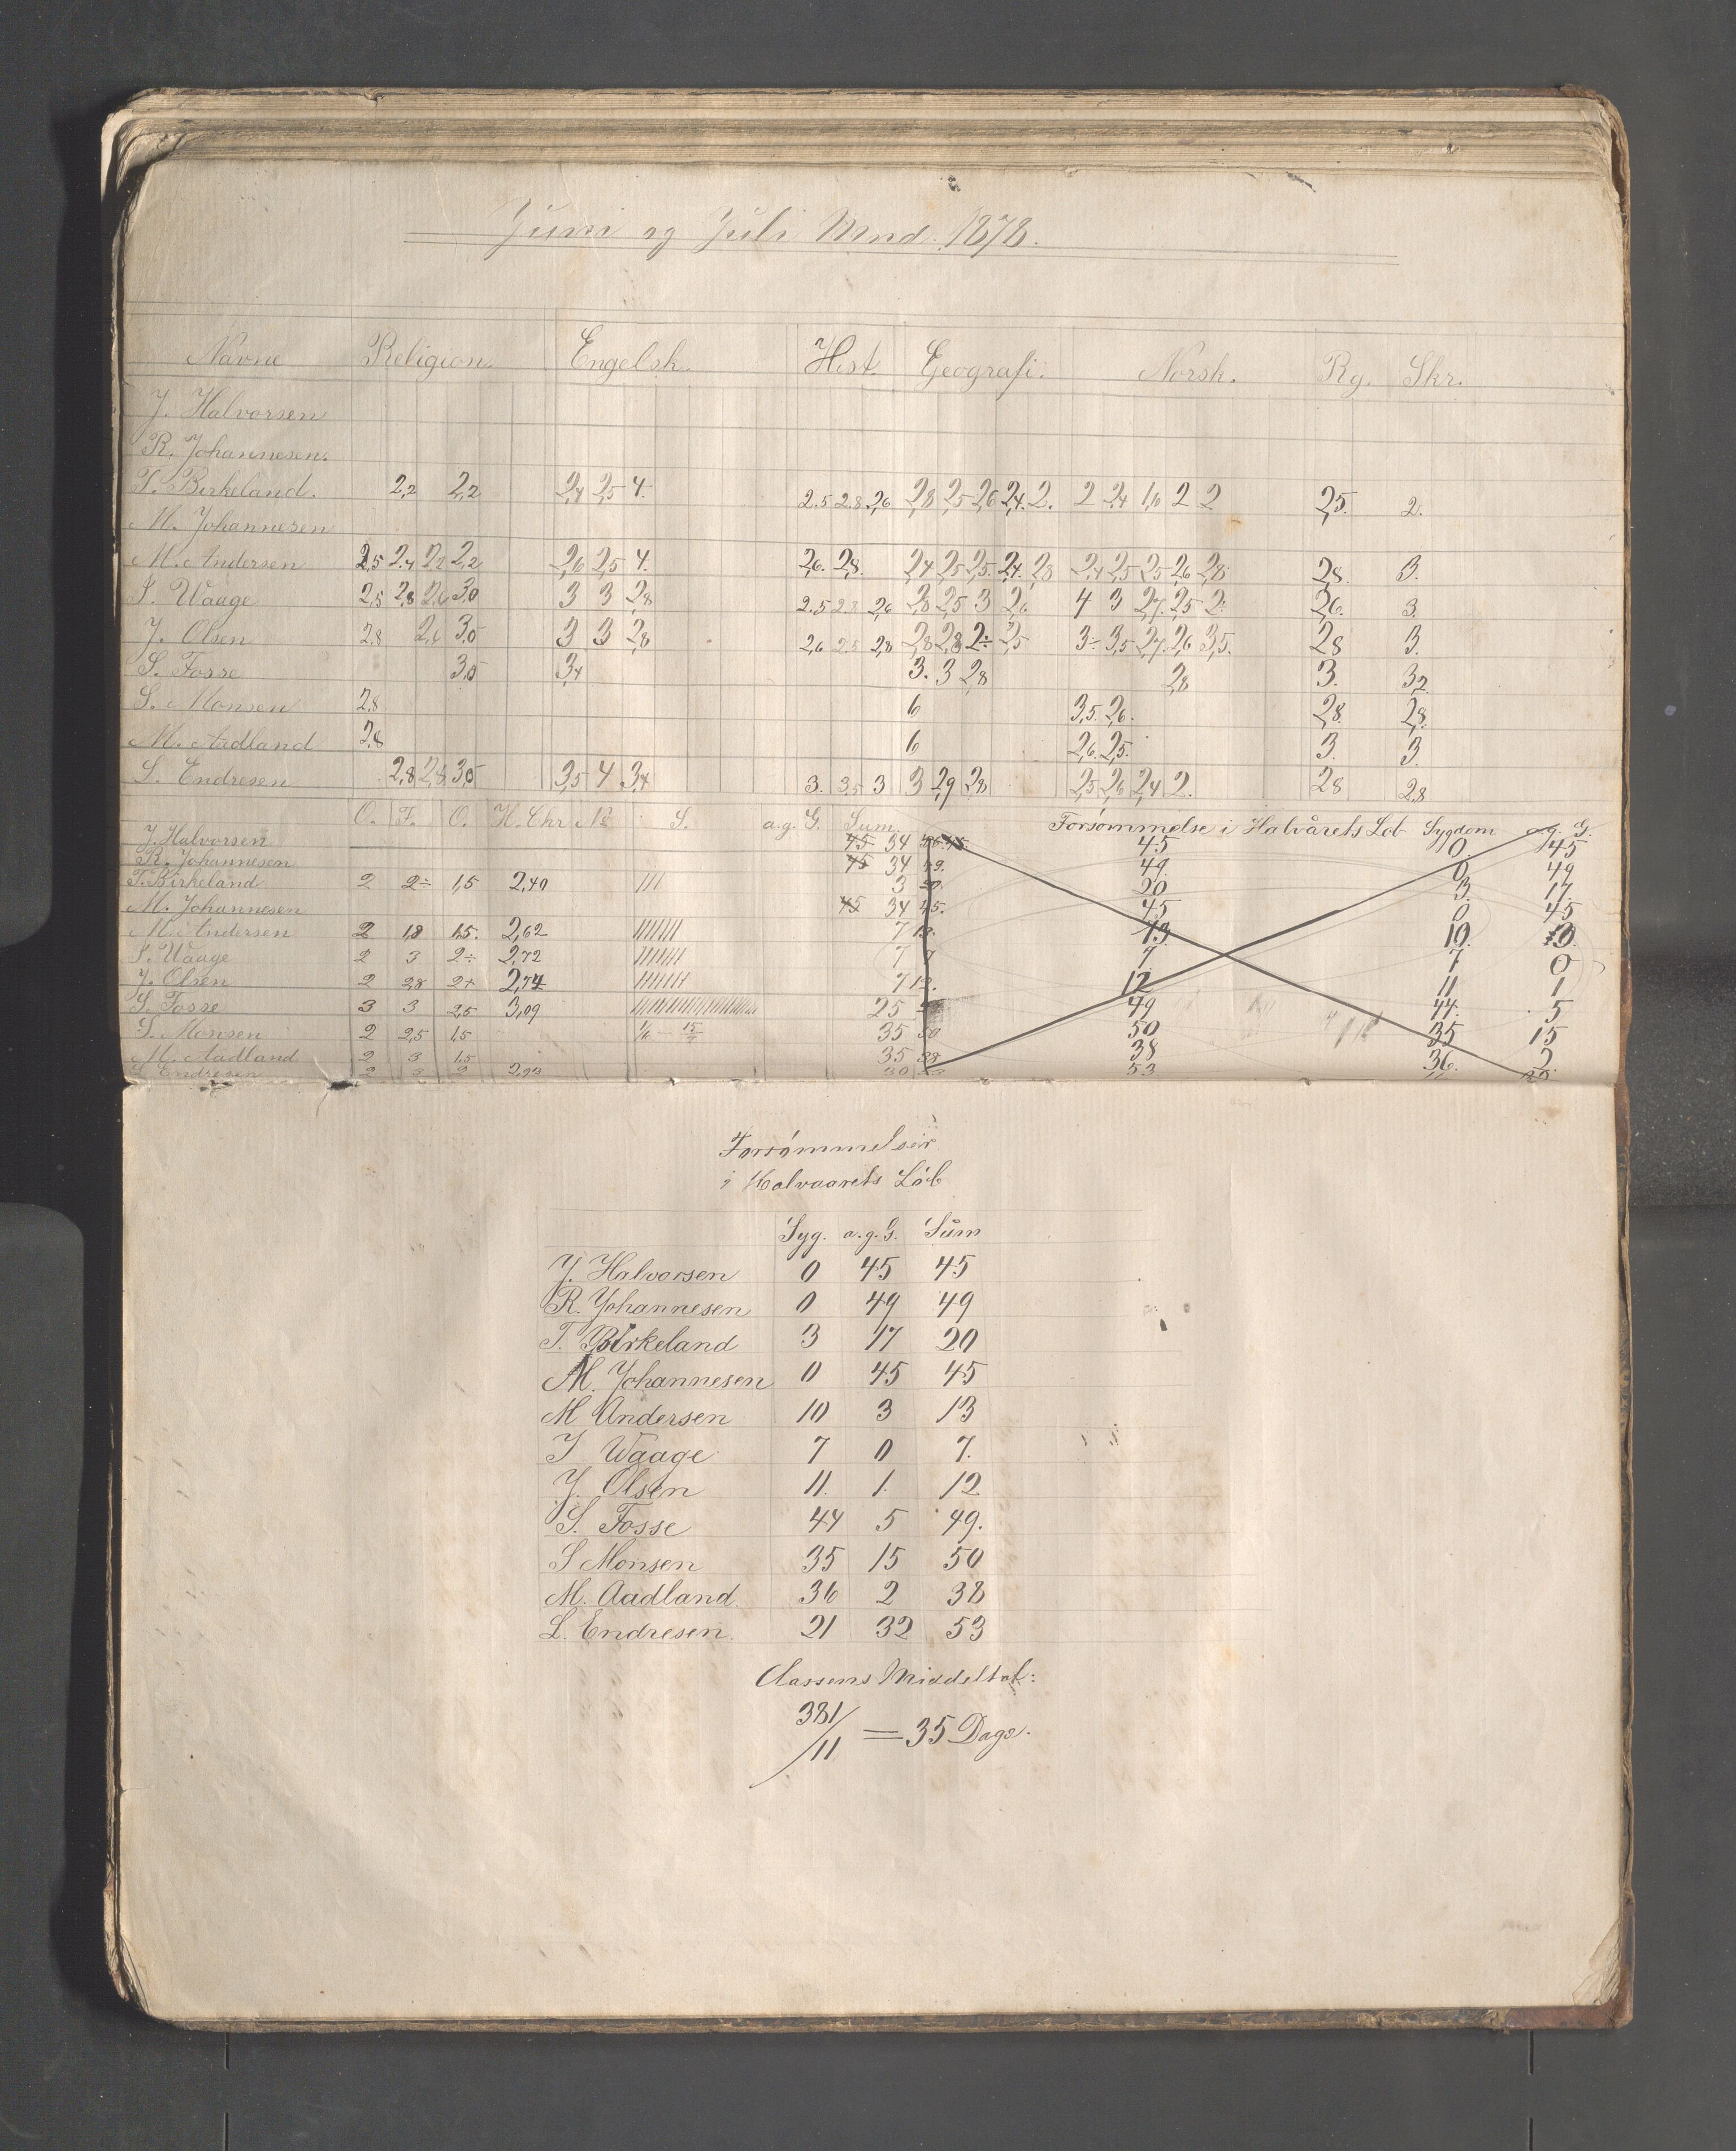 Juni og Juli Mnd. 1878.
Navne Religion. Engelsk. Hist. Geografi. Norsk. Rg. Skr.
J. Halvorsen
R. Johannesen.
T. Birkeland. 2,2 2,2 2,4 2,5 4. 2.5 2.8 2,6 2,8 2,5 2,6 2,4. 2. 2 2,4 1,6 2 2 2,5. 2.
M. Johannesen
M. Andersen 2,5 2.4 2,2 2,2 2,6 2,5 4. 2,6. 2,8. 2,4 2,5 2,5. 2,4. 2,8 2,4 2,5 2,5 2,6 2,8. 2,8. 3.
S. Waage 2,5 2,8 2,6 3,0 3 3 2,8 2.5 2.8 2,6 2,8 2,5 3 2,6 4 3 2,7. 2,5 2. 2,6. 3.
J. Olsen 2,8 2,6 3,5 3 3 2,8 2,6 2.5 2,8 2,8 2,8 2÷ 2,5 3÷ 3,5 2,7. 2,6 3,5. 2,8 3.
S. Fosse 3,5 3,4 3. 3 2,8 2,8 3. 3,2
S. Monsen 2,8 6 3,5. 2,6. 2,8. 2,8.
M. Aadland 2,8 6 2,6. 2,5. 3. 3.
L. Endresen 2,8 2,8 3,5 3,5 4 3,4 3. 3,5 3 3 2,9 2,8 2,5 2,6 2,4 2. 2,8 2,8
O. F. O. H. Chr. No S. a.g. G. Sum Forsømmelse i Halvårets Løb Sygdom a.g. G.
J. Halvorsen 45 34 45 0 45
R. Johannesen 45 34 49. 49 0 49
T. Birkeland 2 2÷ 1,5 2,40 /// 3 20. 20 3. 17.
M. Johannesen 45 34 45. 45 0 45
M. Andersen 2 1,8 1,5. 2,62 /////// 7 13. 13 10.
S. Waage 2 3 2÷ 2,72 /////// 7 7 7 7 0
J. Olsen 2 2,8 2+ 2,74 /////// 7 12. 12 11 1
S. Fosse 3 3 2,5 3,09 25 49 44. 5
S. Monsen 2 2,5 1,5 35 50 50 35 15
M. Aadland 2 3 1,5 35 38 38 36. 2.
L. Endresen 2 3 2 2,93 30 53
Forsømmelser
i Halvaarets Løb
Syg. a.g.G. Sum
J. Halvorsen 0 45 45
R. Johannesen 0 49 49
T. Birkeland 3 17 20
M. Johannesen 0 45 45
M Andersen 10 3 13
S Waage 7 0 7.
J. Olsen 11. 1. 12
S. Fosse 44 5 49.
S Monsen 35 15 50
M. Aadland. 36 2 38
L. Endresen. 21 32 53
Classens Middeltal:
381/11 = 35 Dage.